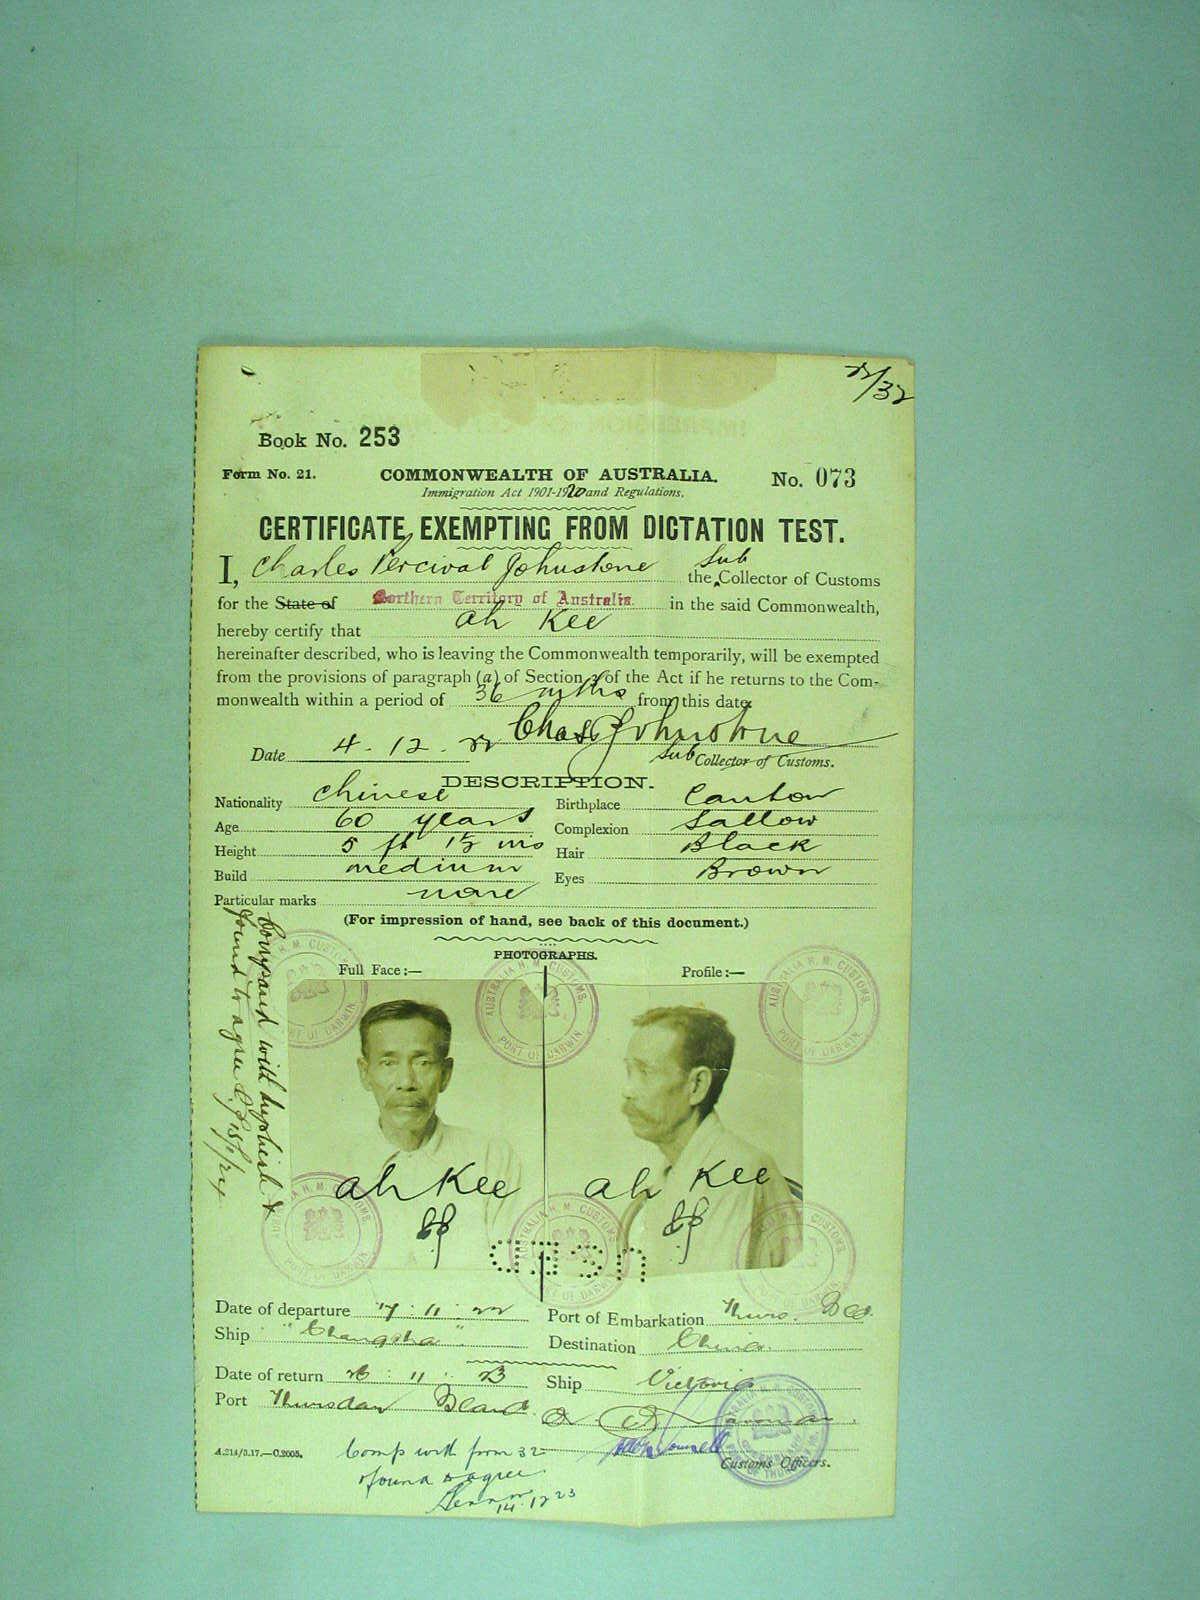 22/32
Book No. 253
Form No. 21. COMMONWEALTH OF AUSTRALIA. No. 073
Immigration Act 1901-1920 and Regulations.
CERTIFICATE EXEMPTING FROM DICTATION TEST.
I, Charles Percival Johnstone the Sub Collector of Customs
for the State of Northern Territory of Australia. in the said Commonwealth,
hereby certify that Ah Kee
hereinafter described, who is leaving the Commonwealth temporarily, will be exempted
from the provisions of paragraph (a) of Section 3 of the Act if he returns to the Com-
monwealth within a period of 36 mths from this date.
Chas P Johnstone
Date 4. 12. 22 Sub Collector of Customs.
DESCRIPTION.
Nationality Chinese Birthplace Canton
Age 60 years Complexion Sallow
Height 5 ft 1½ ins Hair Black
Build medium Eyes Brown
Particular marks none
(For impression of hand, see back of this document.)
PHOTOGRAPHS.
Full Face:— Profile:—
Compared with &
found to agree
AUSTRALIA H. M. CUSTOMS. PORT OF DARWIN
Ah Kee Ah Kee
Date of departure 17 : 11 : 22 Port of Embarkation Thurs. Isd.
Ship "Changsha" Destination China.
Date of return 26 : 11 : 23 Ship Victoria
Port Thursday Island
A.214/3.17.—C.2005.
Customs Officers.
Comp with from 32
& found to agree
14.12.23